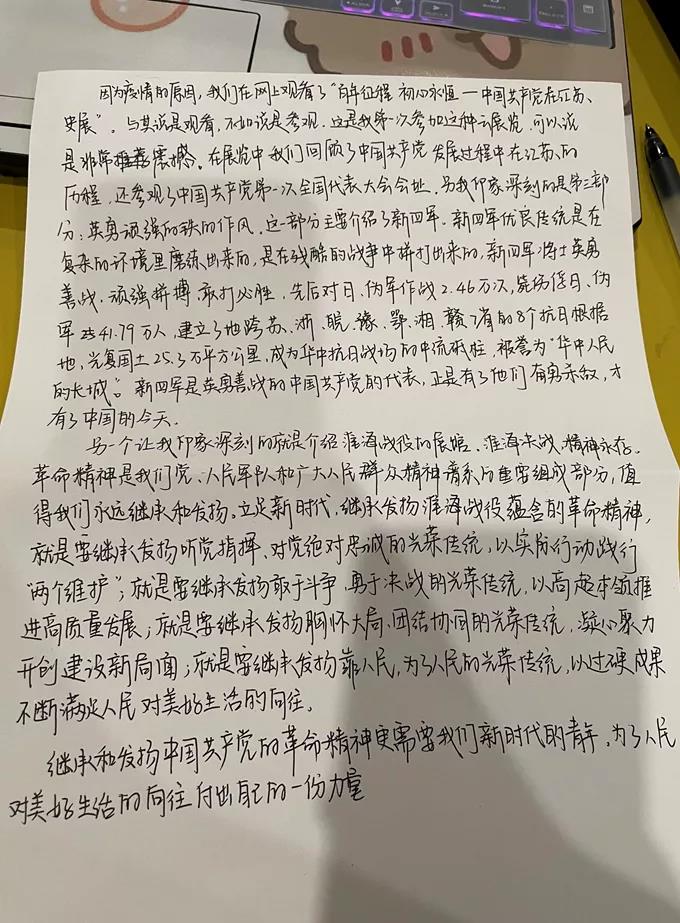 因为疫情的原因，我们在网上观看了“百年征程 初心永恒—中国共产党在江苏、
史展”。与其说是观看，不如说是参观，这是我第一次参加这种云展览，可以说
是非常震撼。在展览中我们回顾了中国共产党发展过程中在江苏的
历程，还参观了中国共产党第一次全国代表大会会址，另我印象深刻的是第三部
分：英勇顽强的铁的作风。这一部分主要介绍了新四军。新四军优良传统是在
复杂的环境里磨练出来的，是在残酷的战争中拼打出来的，新四军将士英勇
善战、顽强拼搏、敢打必胜，先后对日、伪军作战2.46万次，毙伤俘日、伪
军共41.79万人，建立了地跨苏、浙、皖、豫、鄂、湘、赣7省的8个抗日根据
地，光复国土25.3万平方公里，成为华中抗日战场的中流砥柱，被誉为“华中人民
的长城”。新四军是英勇善战的中国共产党的代表，正是有了他们奋勇杀敌，才
有了中国的今天。
另一个让我印象深刻的就是介绍淮海战役的展馆。淮海决战，精神永存。
革命精神是我们党、人民军队和广大人民群众精神谱系的重要组成部分，值
得我们永远继承和发扬。立足新时代，继承发扬淮海战役蕴含的革命精神，
就是要继承发扬听党指挥、对党绝对忠诚的光荣传统，以实际行动践行
“两个维护”；就是要继承发扬敢于斗争、勇于决战的光荣传统，以高超本领推
进高质量发展；就是要继承发扬胸怀大局、团结协同的光荣传统，凝心聚力
开创建设新局面；就是要继承发扬靠人民，为了人民的光荣传统，以过硬成果
不断满足人民对美好生活的向往。
继承和发扬中国共产党的革命精神更需要我们新时代的青年，为了人民
对美好生活的向往付出自己的一份力量